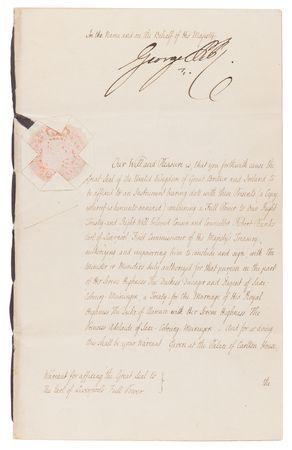 In the Name and on the Behalf of His Majesty.
George P R
Our Will and Pleasure is, that you forthwith cause the
Great Seal of the United Kingdom of Great Britain and Ireland to
be affixed to an Instrument bearing date with these Presents (a Copy
whereof is hereunto annexed) containing a Full Power to Our Right
Trusty and Right Well beloved Cousin and Councillor Robert Banks
Earl of Liverpool First Commissioner of His Majesty's Treasury
authorizing and empowering him to conclude and sign with the
Minister or Ministers duly authorized for that purpose on the part
of Her Serene Highness The Duchess Dowager and Regent of Saxe-
Cobourg-Meiningen, a Treaty for the Marriage of His Royal
Highness The Duke of Clarence with Her Serene Highness The
Princess Adelaide of Saxe-Cobourg-Meiningen. And for so doing
this shall be your Warrant. Given at the Palace of Carlton House,
the
Warrant for affixing the Great Seal to
the Earl of Liverpool's Full Power